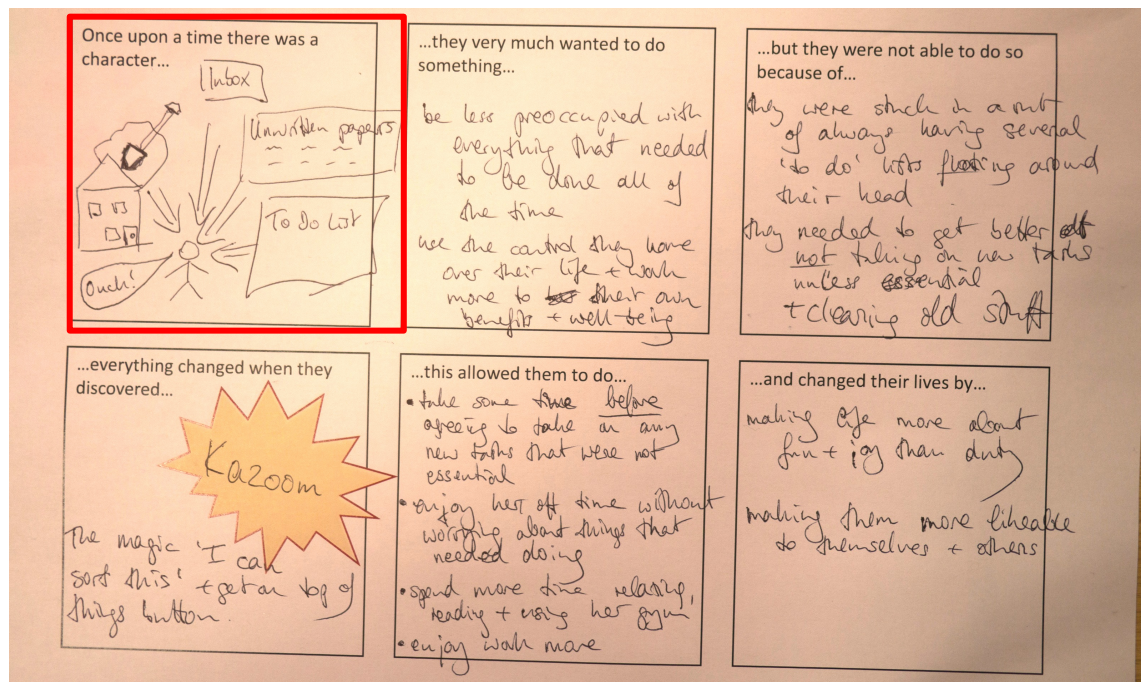 Once upon a time there was a
character...
Inbox
Unwritten papers
To Do List
Ouch!
...they very much wanted to do
something...
be less preoccupied with
everything that needed
to be done all of
the time
use the control they have
over their life + work
more to their own
benefits + well-being
...but they were not able to do so
because of...
they were stuck in a rut
of always having several
'to do' lists floating around
their head
they needed to get better at
not taking on new tasks
unless essential
+ clearing old stuff
...everything changed when they
discovered...
Kazoom
The magic 'I can
sort this' + get on top of
things button.
...this allowed them to do...
• take some time before
agreeing to take on any
new tasks that were not
essential
• enjoy her off time without
worrying about things that
needed doing
• spend more time relaxing,
reading + using her gym
• enjoy work more
...and changed their lives by...
making life more about
fun + joy than duty
making them more likeable
to themselves + others